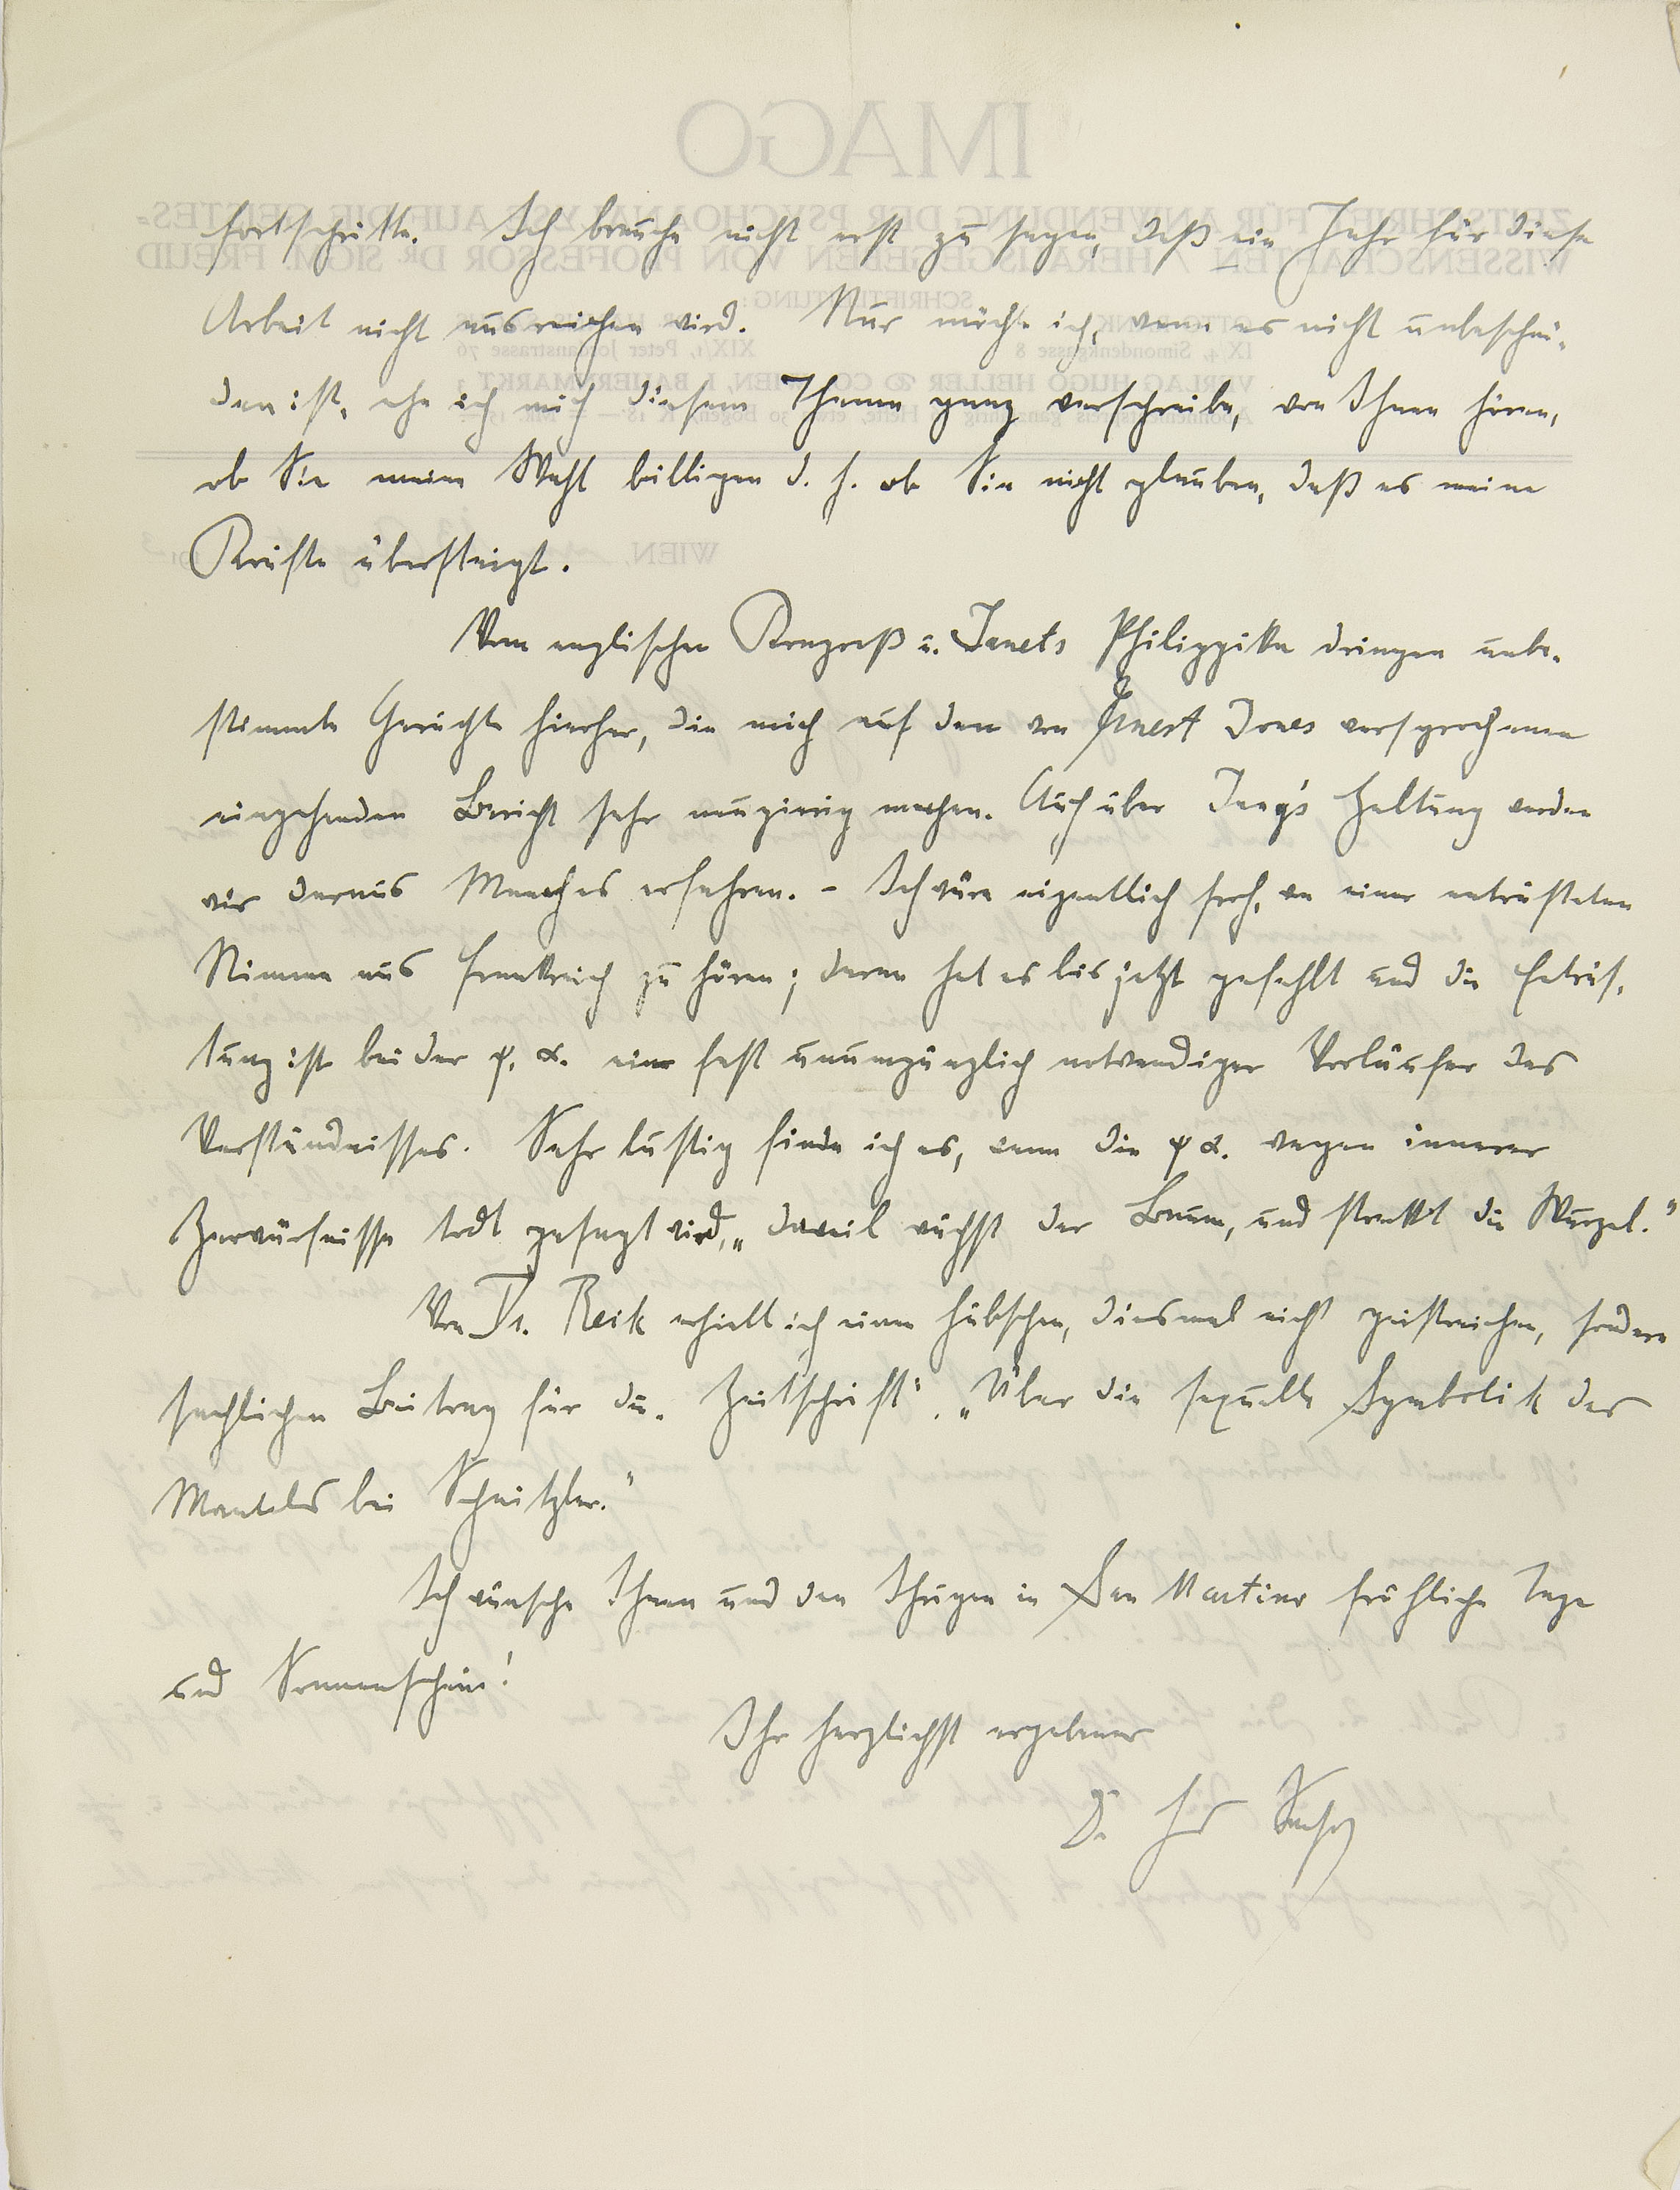 fortschritte. Ich brauche nicht erst zu sagen, daß ein Jahr für diese
Arbeit nicht ausreichen wird. Nur möchte ich, wenn es nicht unbeschei-
den ist, ehe ich mich diesem Thema ganz verschreibe, von Ihnen hören,
ob Sie meine Wahl billigen d. h. ob Sie nicht glauben, daß es meine
Kräfte übersteigt.
Vom englischen Kongreß u. Janets Philippika dringen unbe-
stimmte Gerüchte hierher, die mich auf den von Ernest Jones versprochenen
eingehenden Bericht sehr neugierig machen. Auch über Jung's Haltung werden
wir daraus Manches erfahren. – Ich wäre eigentlich froh, von einer entrüsteten
Stimme aus Frankreich zu hören; daran hat es bis jetzt gefehlt und die Entrüs-
tung ist bei der ψ. α. ein fast unumgänglich notwendiger Vorläufer des
Verständnisses. Sehr lustig finde ich es, wenn die ψ α. wegen innerer
Zerwürfnisse todt gesagt wird, „dweil wächst der Baum, und streckt die Wurzel."
Von Dr. Reik erhielt ich einen hübschen, diesmal nicht geistreichen, sondern
sachlichen Beitrag für die „Zeitschrift". „Über die sexuelle Symbolik des
Mantels bei Schnitzler."
Ich wünsche Ihnen und den Ihrigen in San Martino fröhliche Tage
und Sonnenschein!
Ihr herzlichst ergebener
Dr Hanns Sachs
IMAGO
ZEITSCHRIFT FÜR ANWENDUNG DER PSYCHOANALYSE AUF DIE GEISTES-
WISSENSCHAFTEN / HERAUSGEGEBEN VON PROFESSOR DR. SIGM. FREUD
SCHRIFTLEITUNG:
IX/4, Simondenkgasse 8 XIX/1, Peter Jordanstrasse 76
VERLAG HUGO HELLER & CO., WIEN, I. BAUERNMARKT 3
WIEN,